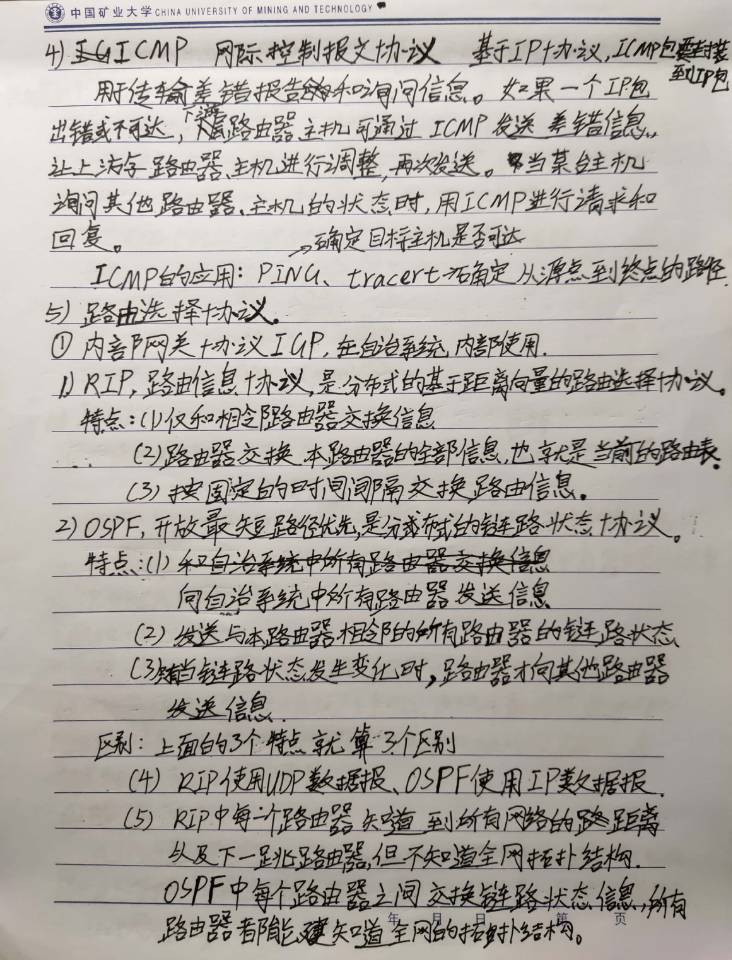 中国矿业大学 CHINA UNIVERSITY OF MINING AND TECHNOLOGY
4) ICMP 网际控制报文协议 基于IP协议，ICMP包要封装
到IP包
用于传输差错报告和询问信息。如果一个IP包
出错或不可达，路由器、主机可通过 ICMP 发送差错信息，
让上游路由器、主机进行调整，再次发送。当某台主机
询问其他路由器、主机的状态时，用ICMP进行请求和
回复。 →确定目标主机是否可达
ICMP的应用：PING、tracert→确定从源点到终点的路径
5) 路由选择协议.
① 内部网关协议 IGP，在自治系统内部使用.
1) RIP，路由信息协议，是分布式的基于距离向量的路由选择协议。
特点：(1)仅和相邻路由器交换信息
(2)路由器交换本路由器的全部信息，也就是当前的路由表.
(3) 按固定的时间间隔交换路由信息.
2) OSPF，开放最短路径优先，是分布式的链路状态协议。
特点：(1) 和自治系统中所有路由器交换信息
向自治系统中所有路由器发送信息
(2) 发送与本路由器相邻的所有路由器的链路状态
(3)当链路状态发生变化时，路由器才向其他路由器
发送信息.
区别：上面的3个特点就算3个区别
(4) RIP使用UDP数据报、OSPF使用IP数据报.
(5) RIP中每个路由器知道到所有网络的距离
以及下一跳路由器，但不知道全网拓扑结构.
OSPF中每个路由器之间交换链路状态信息，所有
路由器都能知道全网的拓扑结构。
年 月 日 第 页